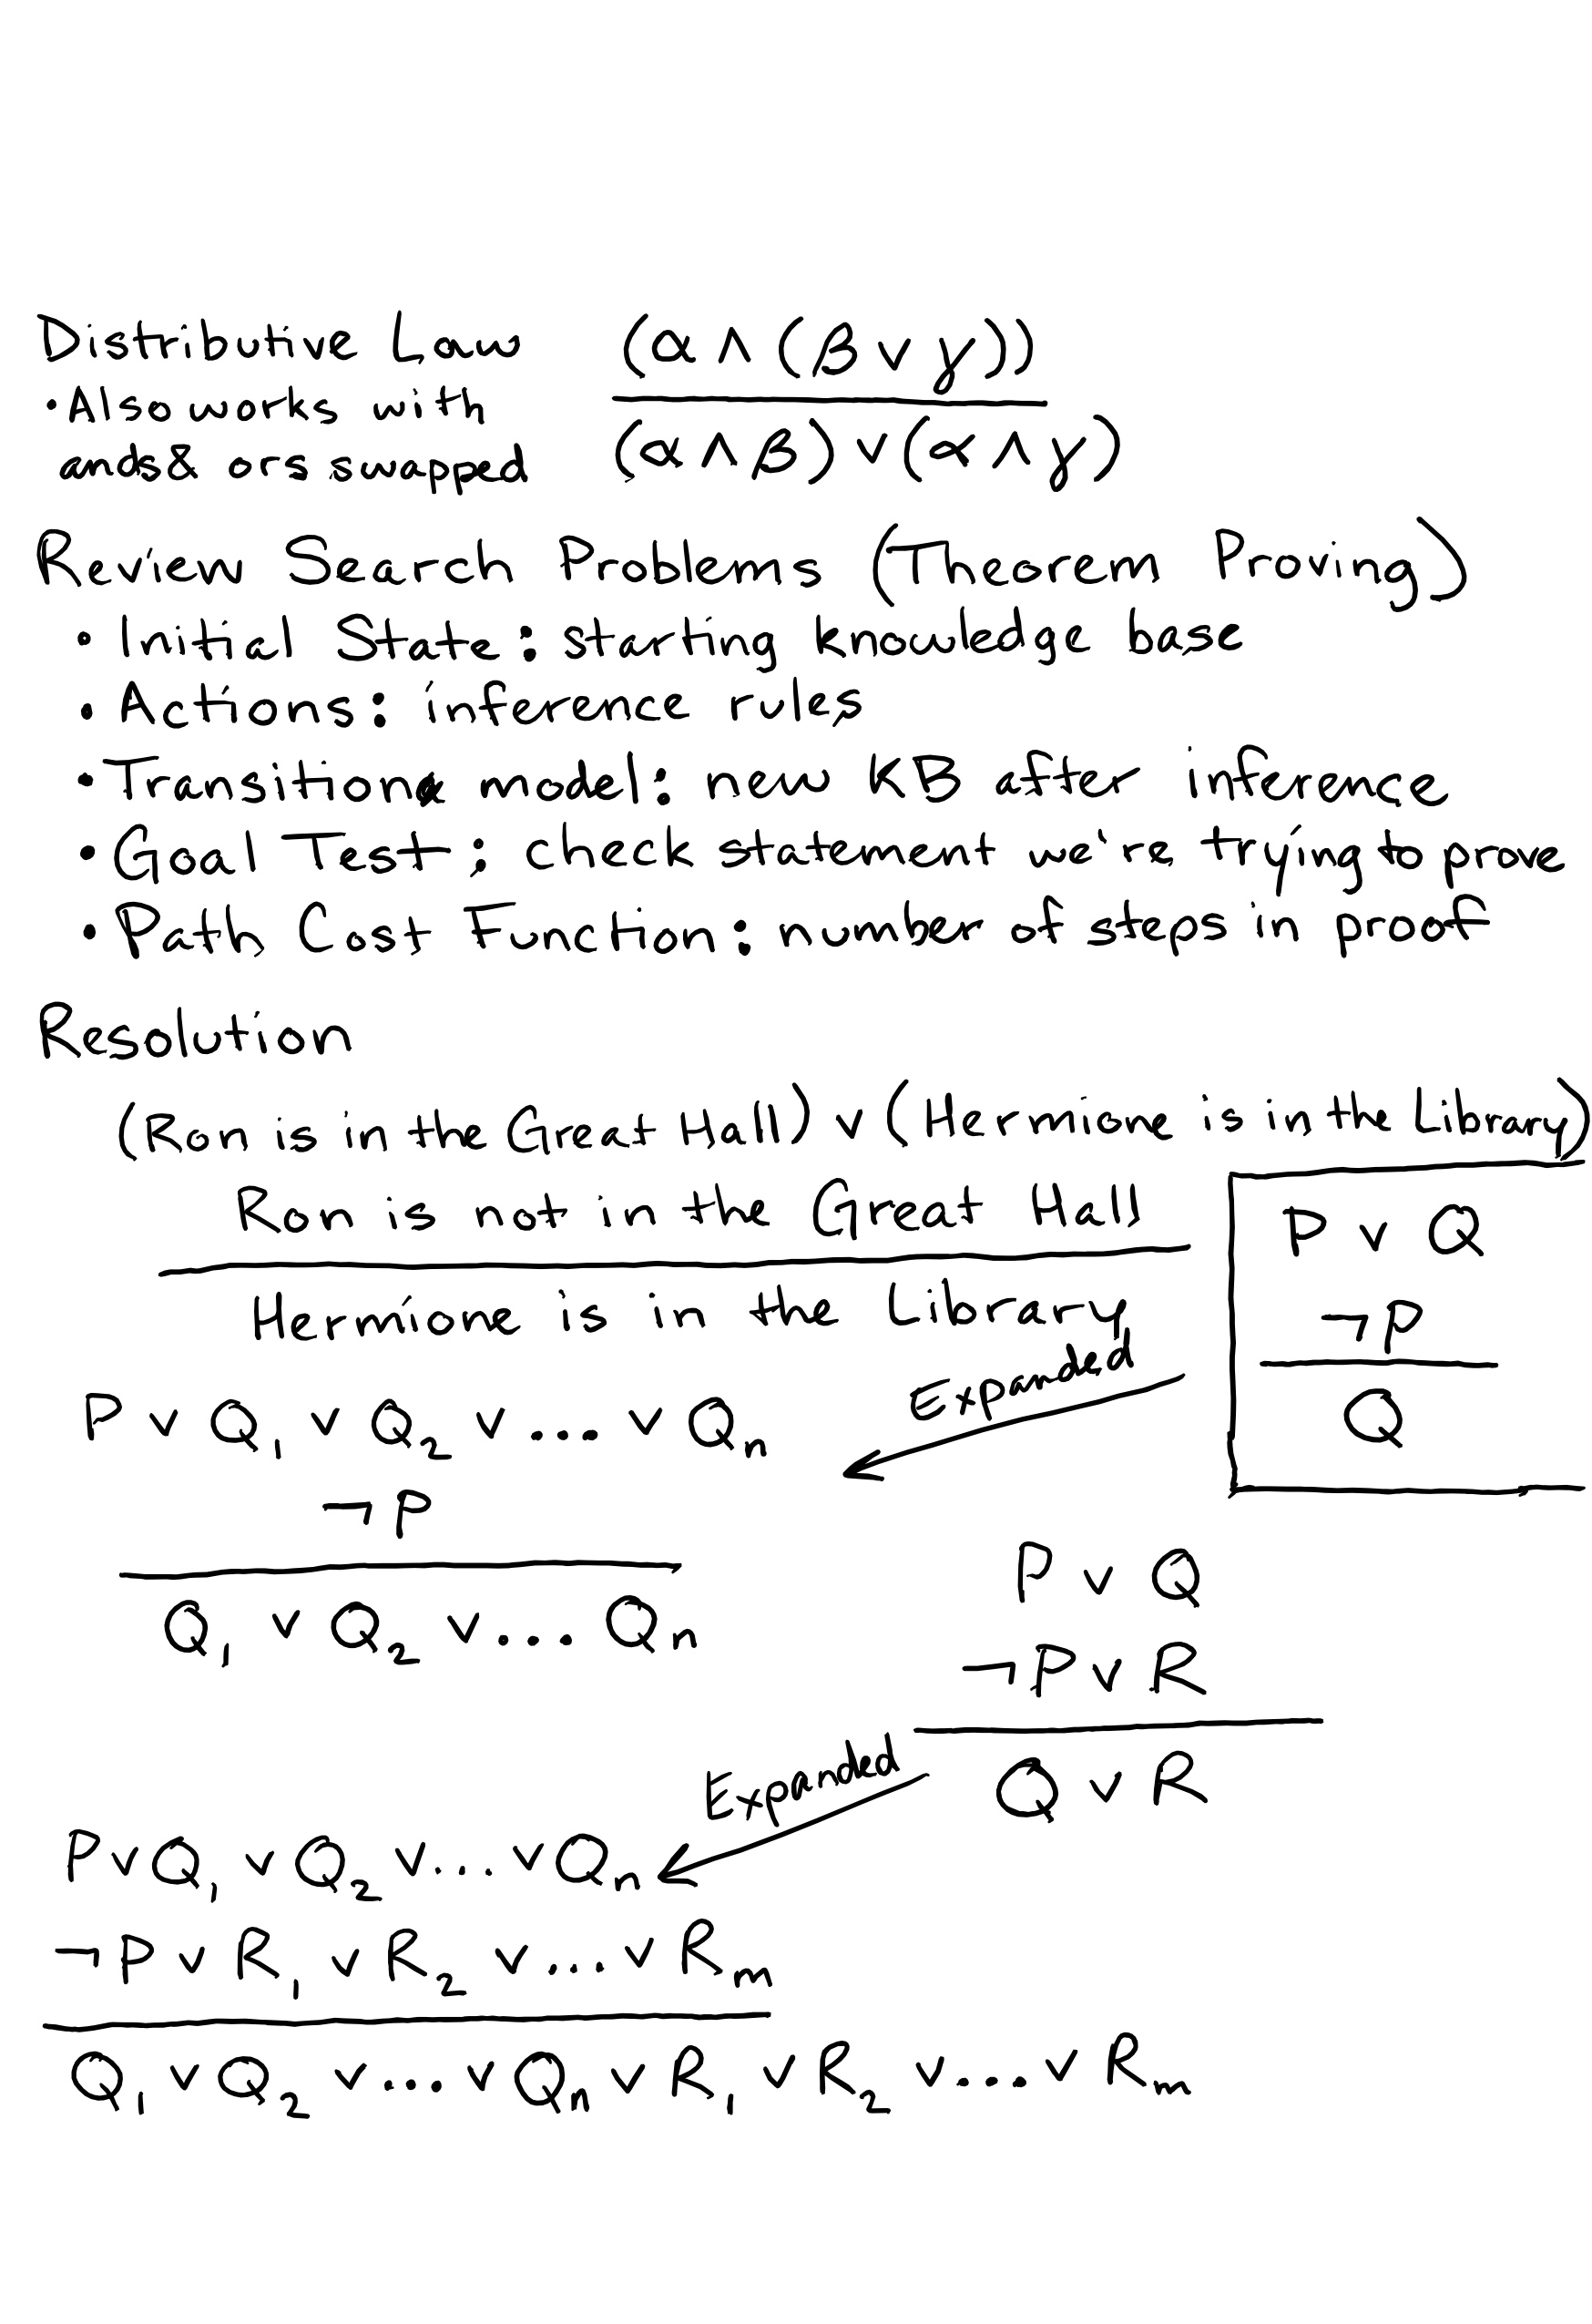 Distributive Law
(α ∧ (β ∨ γ))
• Also works with
ands & ors swapped
(α ∧ β) ∨ (α ∧ γ)
Review Search Problems (Theorem Proving)
• Initial State: starting knowledge base
• Actions: inference rules
• Transition model: new KB after inference
• Goal Test: check statement we're trying to prove
• Path Cost Function: number of steps in proof
Resolution
(Ron is in the Great Hall) ∨ (Hermione is in the Library)
Ron is not in the Great Hall
Hermione is in the Library
P ∨ Q
¬P
Q
Expanded
P ∨ Q₁ ∨ Q₂ ∨ ... ∨ Qₙ
¬P
Q₁ ∨ Q₂ ∨ ... Qₙ
P ∨ Q
¬P ∨ R
Q ∨ R
Expanded
P ∨ Q₁ ∨ Q₂ ∨ ... ∨ Qₙ
¬P ∨ R₁ ∨ R₂ ∨ ... ∨ Rₘ
Q₁ ∨ Q₂ ∨ ... ∨ Qₙ ∨ R₁ ∨ R₂ ∨ ... ∨ Rₘ